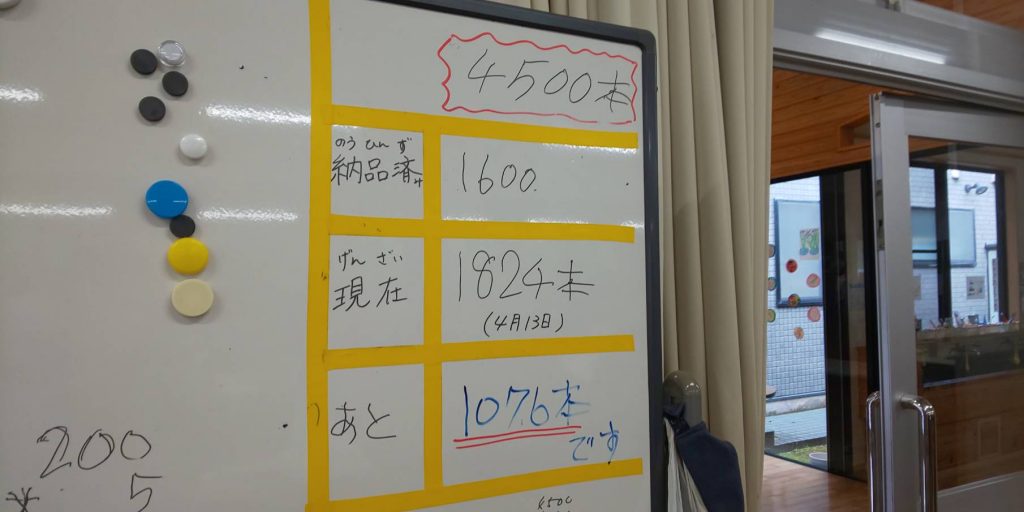 4500本
のうひんず
納品済み
1600.
げんざい
現在
1824本
(4月13日)
あと
1076本
です
200
5